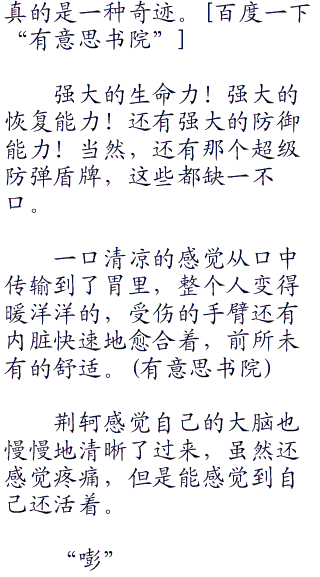 真的是一种奇迹。[百度一下
“有意思书院”]
强大的生命力！强大的
恢复能力！还有强大的防御
能力！当然，还有那个超级
防弹盾牌，这些都缺一不
口。
一口清凉的感觉从口中
传输到了胃里，整个人变得
暖洋洋的，受伤的手臂还有
内脏快速地愈合着，前所未
有的舒适。(有意思书院)
荆轲感觉自己的大脑也
慢慢地清晰了过来，虽然还
感觉疼痛，但是能感觉到自
己还活着。
“嘭”